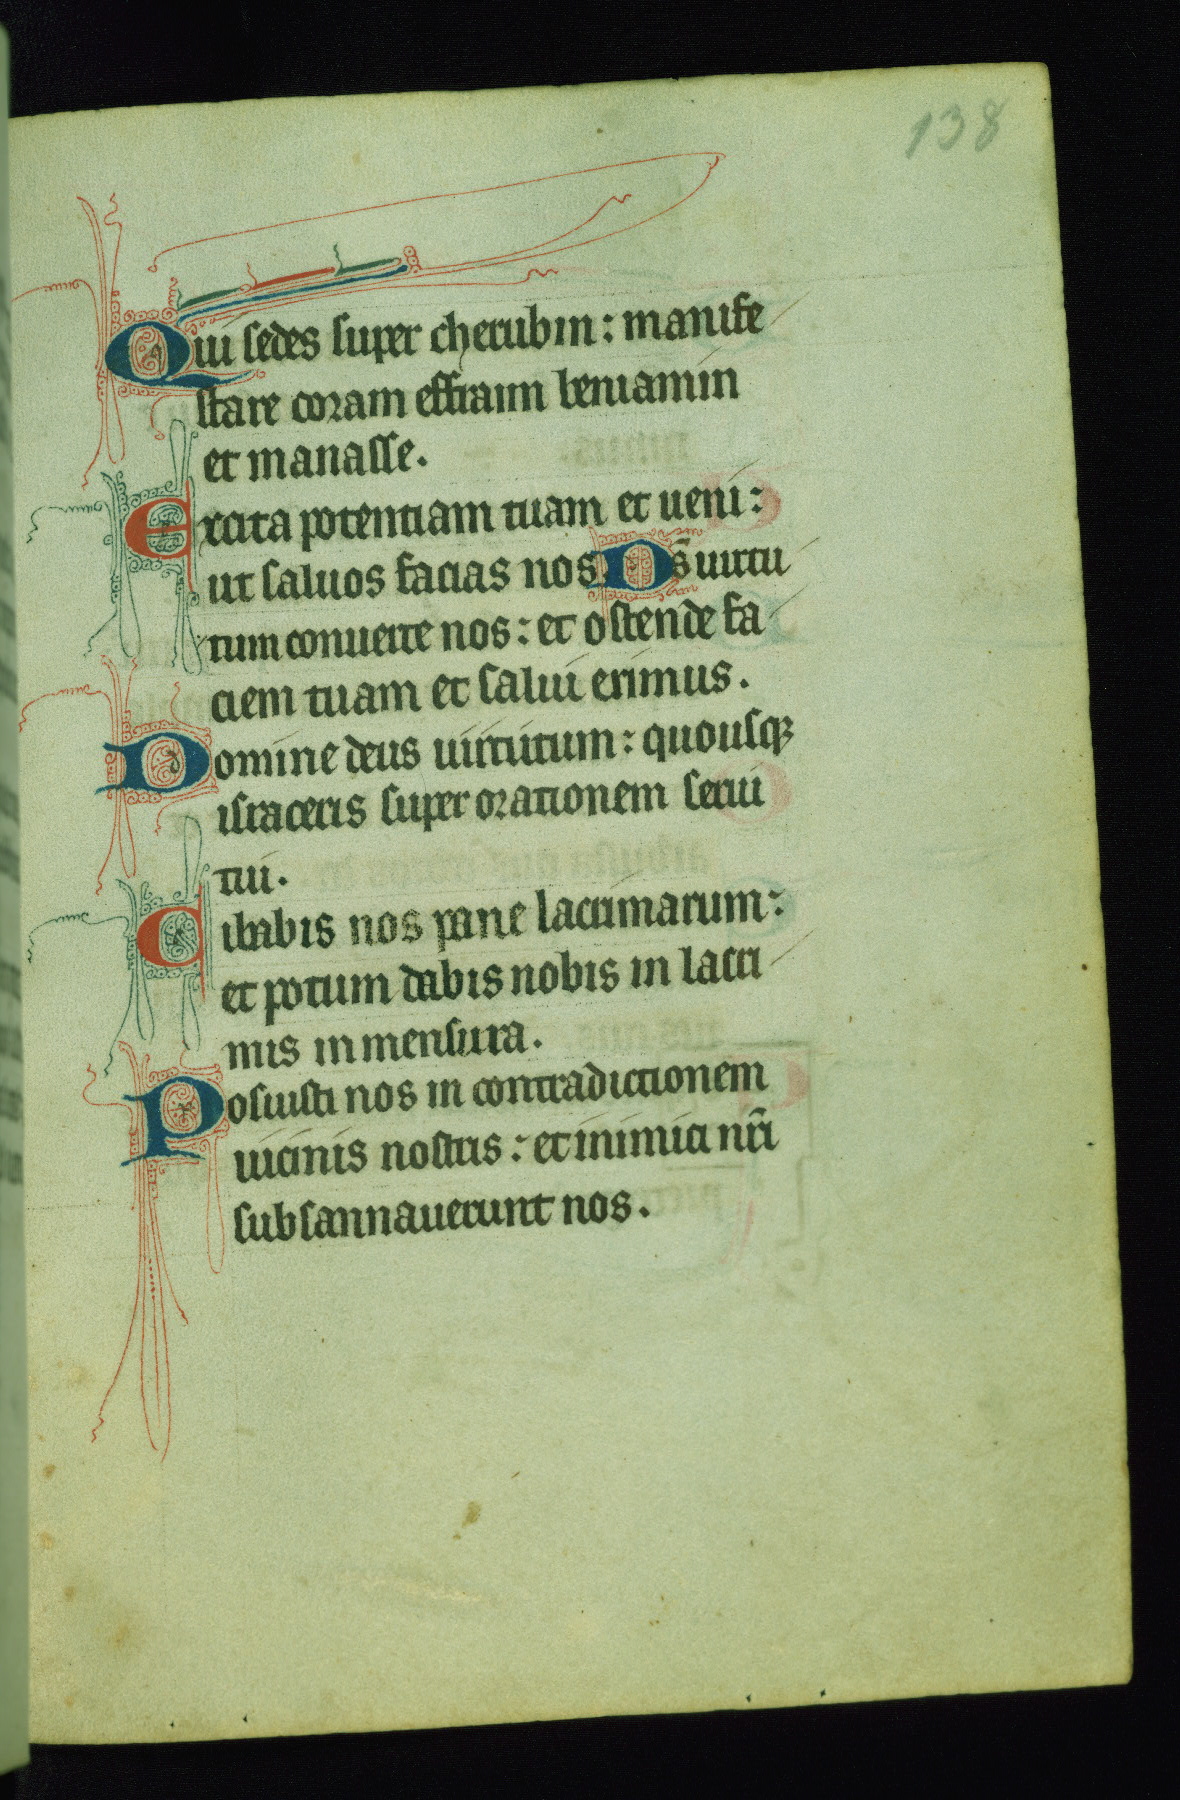 138
Qui sedes super cherubin : manife
stare coram effraim beniamin
et manasse .
Excita potentiam tuam et ueni :
ut saluos facias nos . Ds̄ uirtu
tum conuerte nos : et ostende fa
ciem tuam et salui erimus .
Domine deus uirtutum : quousqꝫ
irasceris super orationem serui
tui .
Cibabis nos pane lacrimarum :
et potum dabis nobis in lacri
mis in mensura .
Posuisti nos in contradictionem
uicinis nostris : et inimici nr̄i
subsannauerunt nos .